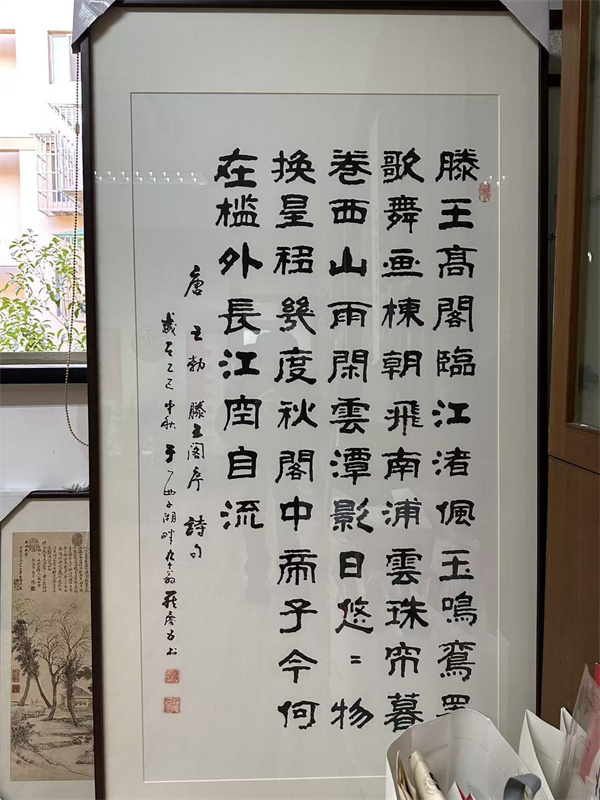 滕王高閣臨江渚佩玉鳴鸞罷
歌舞画棟朝飛南浦雲珠帘暮
卷西山雨閑雲潭影日悠〻物
换星移幾度秋閣中帝子今何
在槛外長江空自流
唐王勃滕王阁序詩句
歲在乙巳中秋于西子湖畔